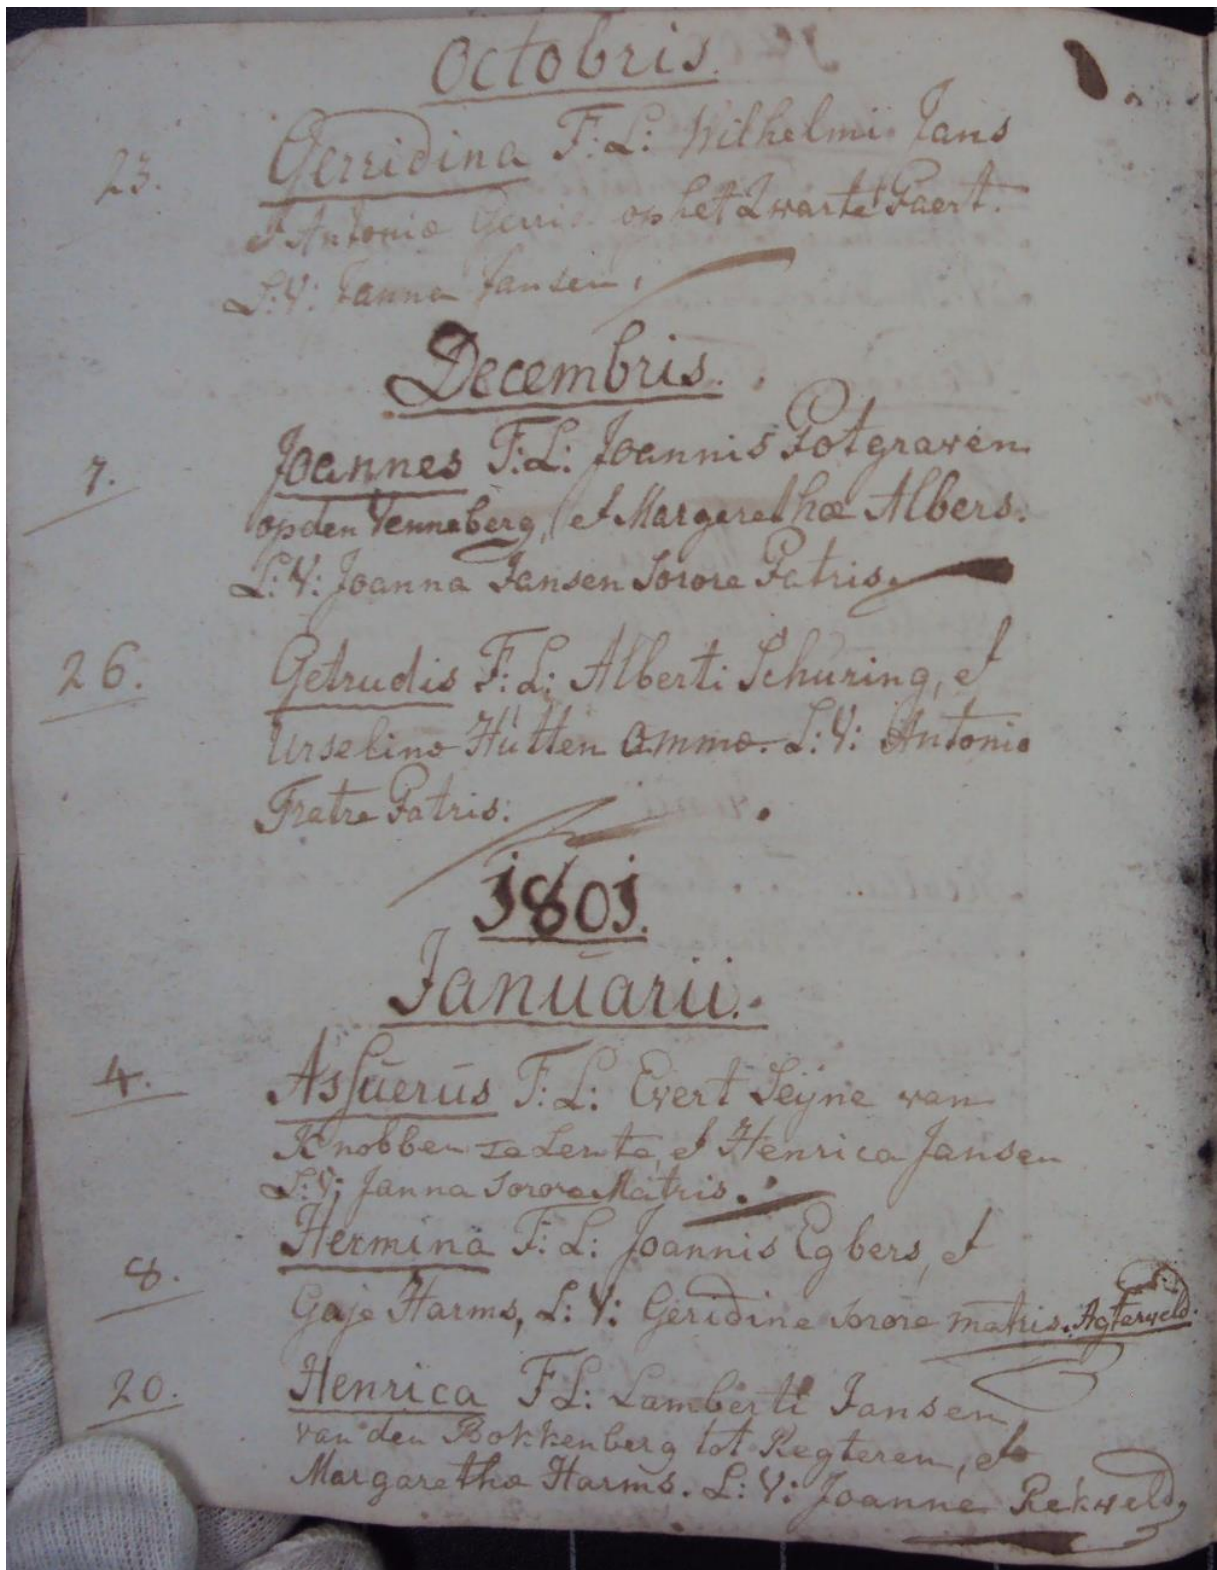 Octobris.
23. Gerridina F: L: Wilhelmi Jans
et Antoniæ Gerri op het Zwarte Paert.
L: V: Janna Jansen.
Decembris.
7. Joannes F: L: Joannis Potgraven
op den Venneberg, et Margarethæ Albers.
L: V: Joanna Jansen Sorore Patris.
26. Getrudis F: L: Alberti Schuring, et
Urselinæ Hutten Ommæ. L: V: Antonio
Fratre Patris.
1801.
Januarii.
4. Assuerus F: L: Evert Seÿne van
Knobben za Lenta, et Henrica Jansen
L: V: Janna Sorore Matris.
Hermina F: L: Joannis Egbers, et
8. Gaje Harms, L: V: Geridina sorore matris. Agterveld.
20. Henrica F L: Lamberti Jansen
van den Bokkenberg tot Regteren, et
Margaretha Harms. L: V: Joanne Rekveld